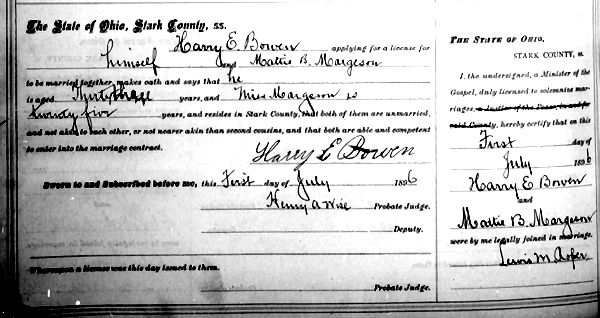 The State of Ohio, Stark County, ss.
Harry E. Bowen applying for a license for
himself and Mattie B. Margeson
to be married together, makes oath and says that he
is aged Thirty three years, and Miss Margeson is
twenty five years, and resides in Stark County, that both of them are unmarried,
and not akin to each other, or not nearer akin than second cousins, and that both are able and competent
to enter into the marriage contract.
Harry E Bowen
Sworn to and Subscribed before me, this First day of July 1896
Henry A Wise Probate Judge.
Deputy.
Whereupon a license was this day issued to them.
Probate Judge.
THE STATE OF OHIO,
STARK COUNTY, ss.
I, the undersigned, a Minister of the
Gospel, duly licensed to solemnize mar-
riages, a Justice of the Peace in and for
said County, hereby certify that on this
First day of
July 1896
Harry E Bowen
and
Mattie B. Margeson
were by me legally joined in marriage.
Lewis M Roper